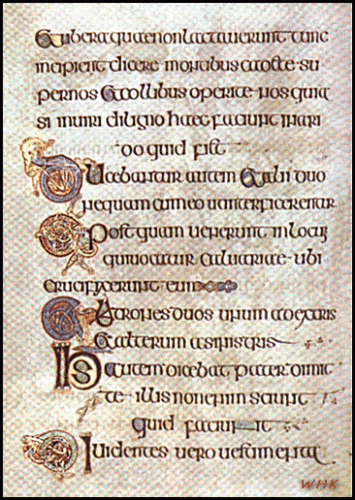 Et ubera quae non lactauerunt tunc
incipient dicere montibus cadite su
per nos et collibus operite nos quia
si in umidi ligno haec faciunt in ari
do quid fiet
Ducebantur autem et alii duo
nequam cum eo ut interficerentur
Et postquam uenerunt in locum
qui uocatur caluariae ubi
crucifixerunt eum
Et latrones duos unum a dextris
et alterum a sinistris
Ihs autem dicebat pater dimit
te illis non enim sciunt
quid faciunt
Diuidentes uero
WHK